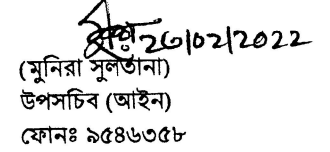 ২৩/০২/২০২২
(মুনিরা সুলতানা)
উপসচিব (আইন)
ফোনঃ ৯৫৪৬৩৫৮